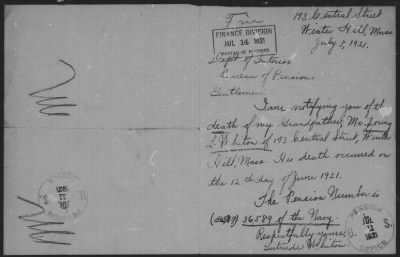 Fin
193 Central Street
Winter Hill, Mass.
July 8, 1921.
FINANCE DIVISION
JUL 14 1921
BUREAU OF PENSIONS
Dept of Interior
Bureau of Pension.
Gentlemen:
I am notifying you of the
death of my Grandfather, Mr. Loring
L. Whiton of 193 Central Street, Winter
Hill, Mass. His death occurred on
the 12th day of June 1921.
The Pension Number is
36589 of the Navy.
Respectfully yours,
Gertrude Whiton.
U.S. PENSION OFFICE
JUL 12 1921
JUL 11 1921